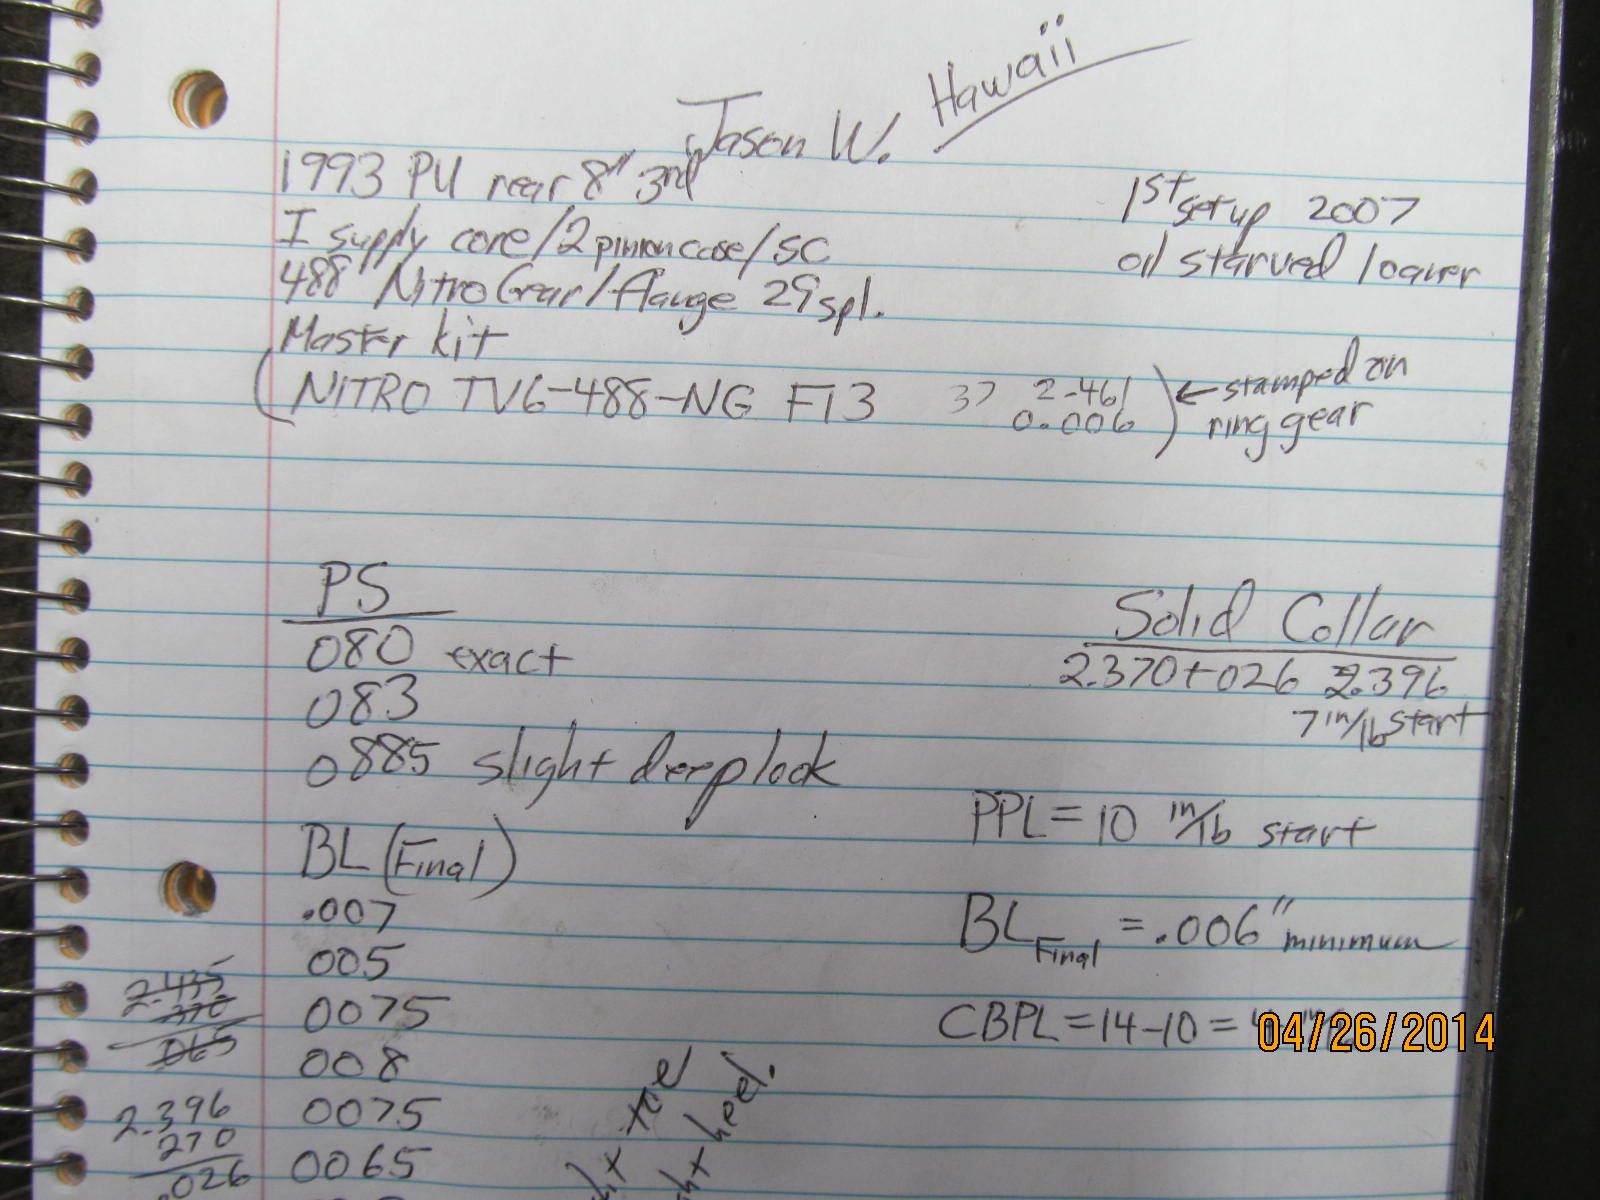 Jason W. Hawaii
1993 PU rear 8" 3rd
I supply core/2 pinion case/SC
488 Nitro Gear/flange 29 spl.
Master kit
(NITRO TV6-488-NG F13 37 2.461
0.006) ← stamped on
ring gear
1st setup 2007
oil starved loaner
PS
080 exact
083
0885 slight deep look
BL (Final)
.007
005
0075
008
0075
0065
2.435
370
.065
2.396
270
.026
Solid Collar
2.370+026 2.396
7 in/lb start
PPL = 10 in/lb start
BL Final = .006" minimum
CBPL = 14-10 =
04/26/2014
toe
heel.